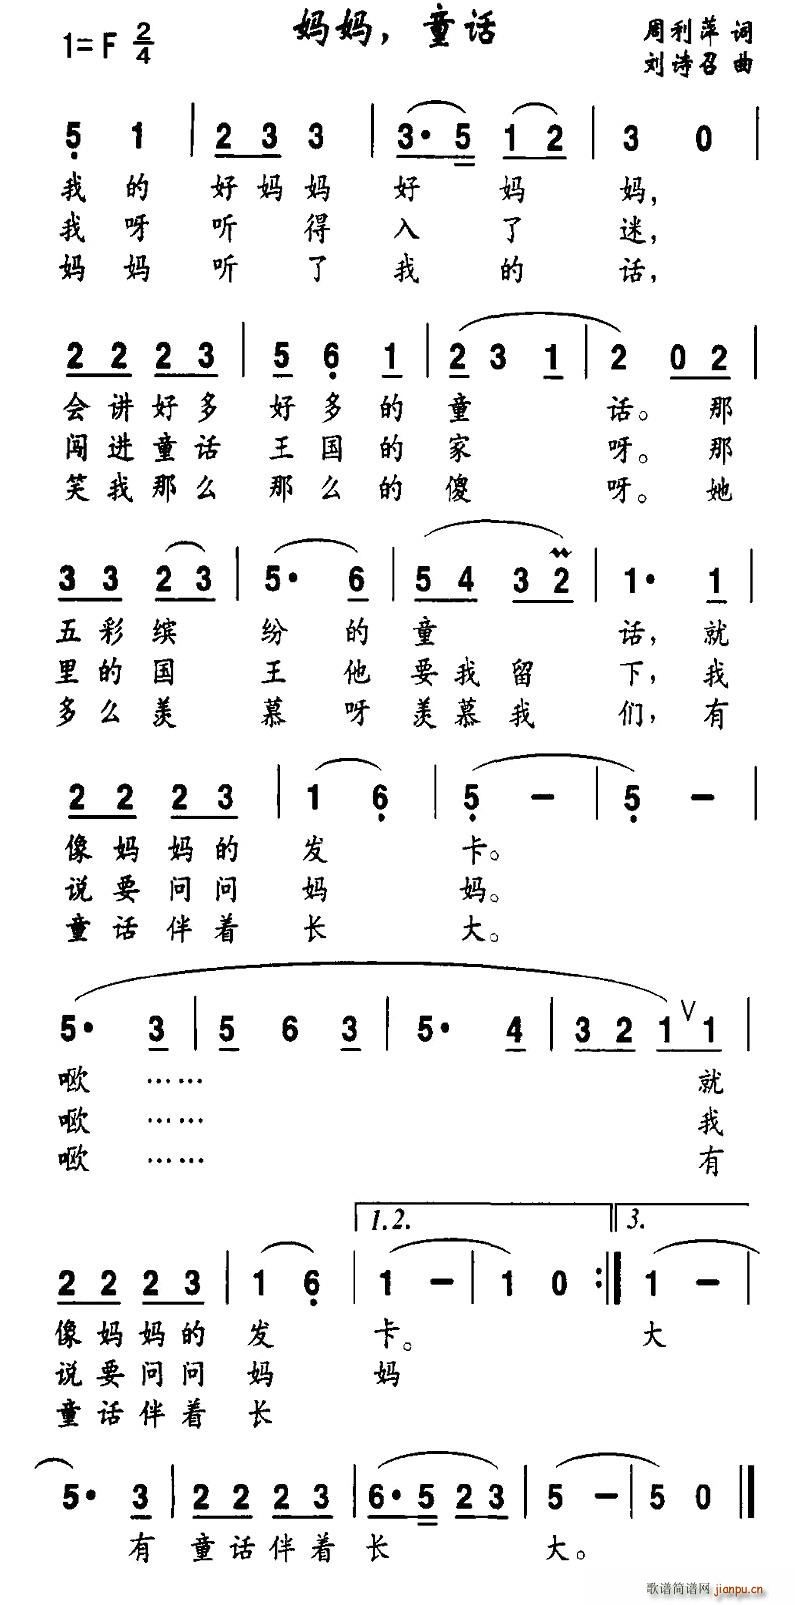 妈妈，童话
1=F 2/4
周利萍 词
刘诗召 曲
5 1 | 2 3 3 | 3· 5 1 2 | 3 0 |
我的好妈妈好妈妈，
我呀听得入了迷，
妈妈听了我的话，
2 2 2 3 | 5 6 1 | 2 3 1 | 2 0 2 |
会讲好多好多的童话。那
闯进童话王国的家呀。那
笑我那么那么的傻呀。她
3 3 2 3 | 5· 6 | 5 4 3 2 | 1· 1 |
五彩缤纷的童话，就
里的国王他要我留下，我
多么羡慕呀羡慕我们，有
2 2 2 3 | 1 6 | 5 – | 5 – |
像妈妈的发卡。
说要问问妈妈。
童话伴着长大。
5· 3 | 5 6 3 | 5· 4 | 3 2 1 V 1 |
呕…… 就
呕…… 我
呕…… 有
1.2. 3.
2 2 2 3 | 1 6 | 1 – | 1 0 :| 1 – |
像妈妈的发卡。 大
说要问问妈妈
童话伴着长
5· 3 | 2 2 2 3 | 6· 5 2 3 | 5 – | 5 0 ‖
有童话伴着长大。
歌谱简谱网 jianpu.cn